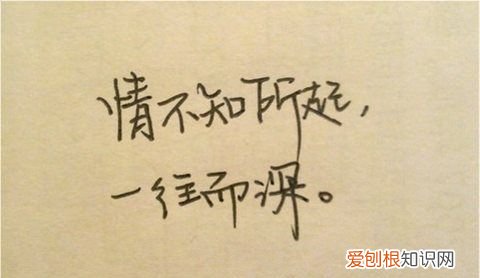 情不知所起，
一往而深。
爱刨根知识网